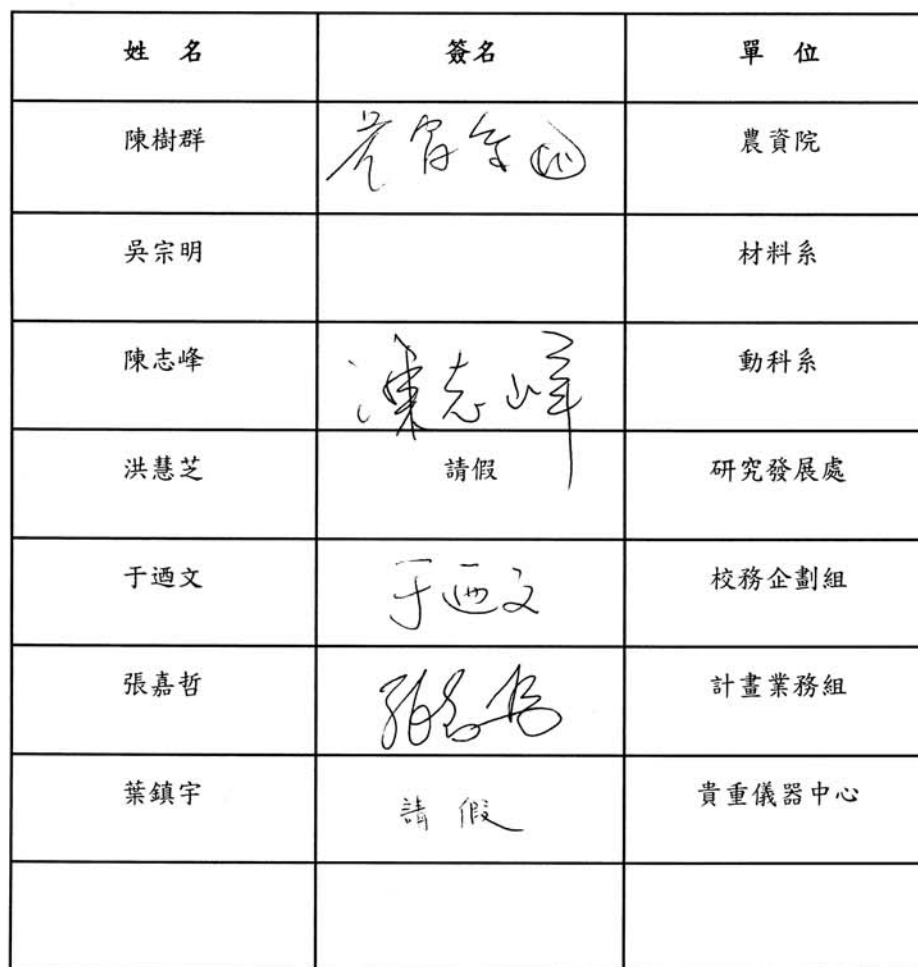 姓 名 簽名 單 位
陳樹群 農資院
吳宗明 材料系
陳志峰 陳志峰 動科系
洪慧芝 請假 研究發展處
于迺文 于迺文 校務企劃組
張嘉哲 計畫業務組
葉鎮宇 請假 貴重儀器中心